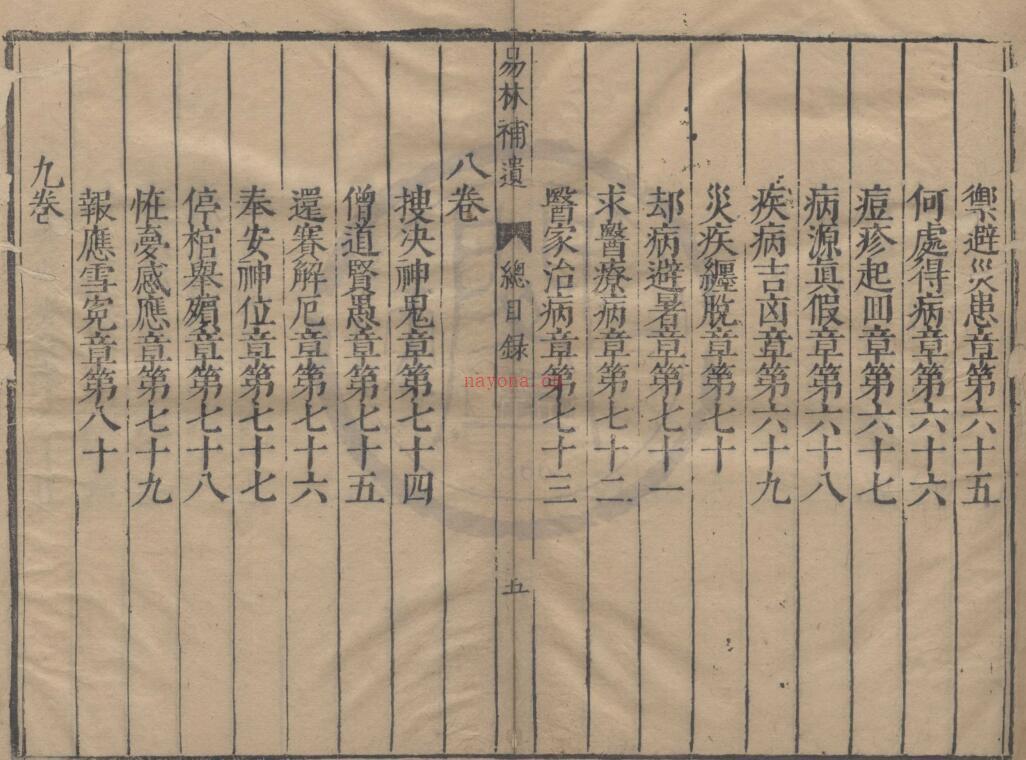 禦避災患章第六十五
何處得病章第六十六
痘疹起回章第六十七
病源眞假章第六十八
疾病吉凶章第六十九
災疾纏脫章第七十
却病避暑章第七十一
求醫療病章第七十二
醫家治病章第七十三
易林補遺 總目錄 五
八卷
搜决神鬼章第七十四
僧道賢愚章第七十五
還賽解厄章第七十六
奉安神位章第七十七
停棺舉殯章第七十八
怪憂感應章第七十九
報應雪寃章第八十
九卷
nayona.cn